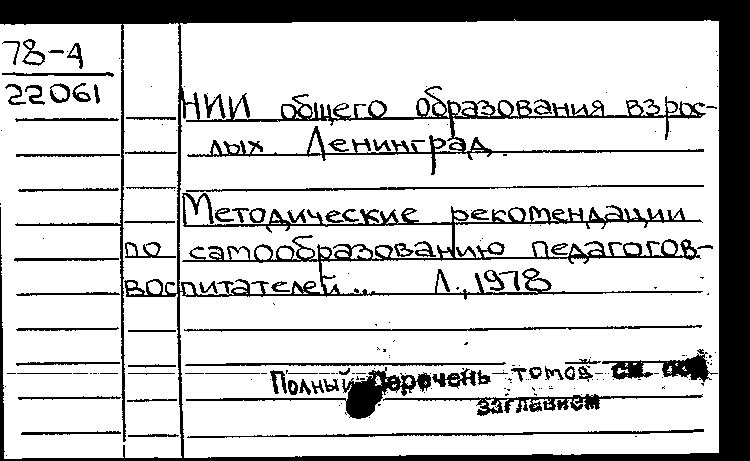 78-4
22061
НИИ общего образования взрос-
лых. Ленинград.
Методические рекомендации
по самообразованию педагогов-
воспитателей... Л., 1978
Полный перечень томов см. под
заглавием